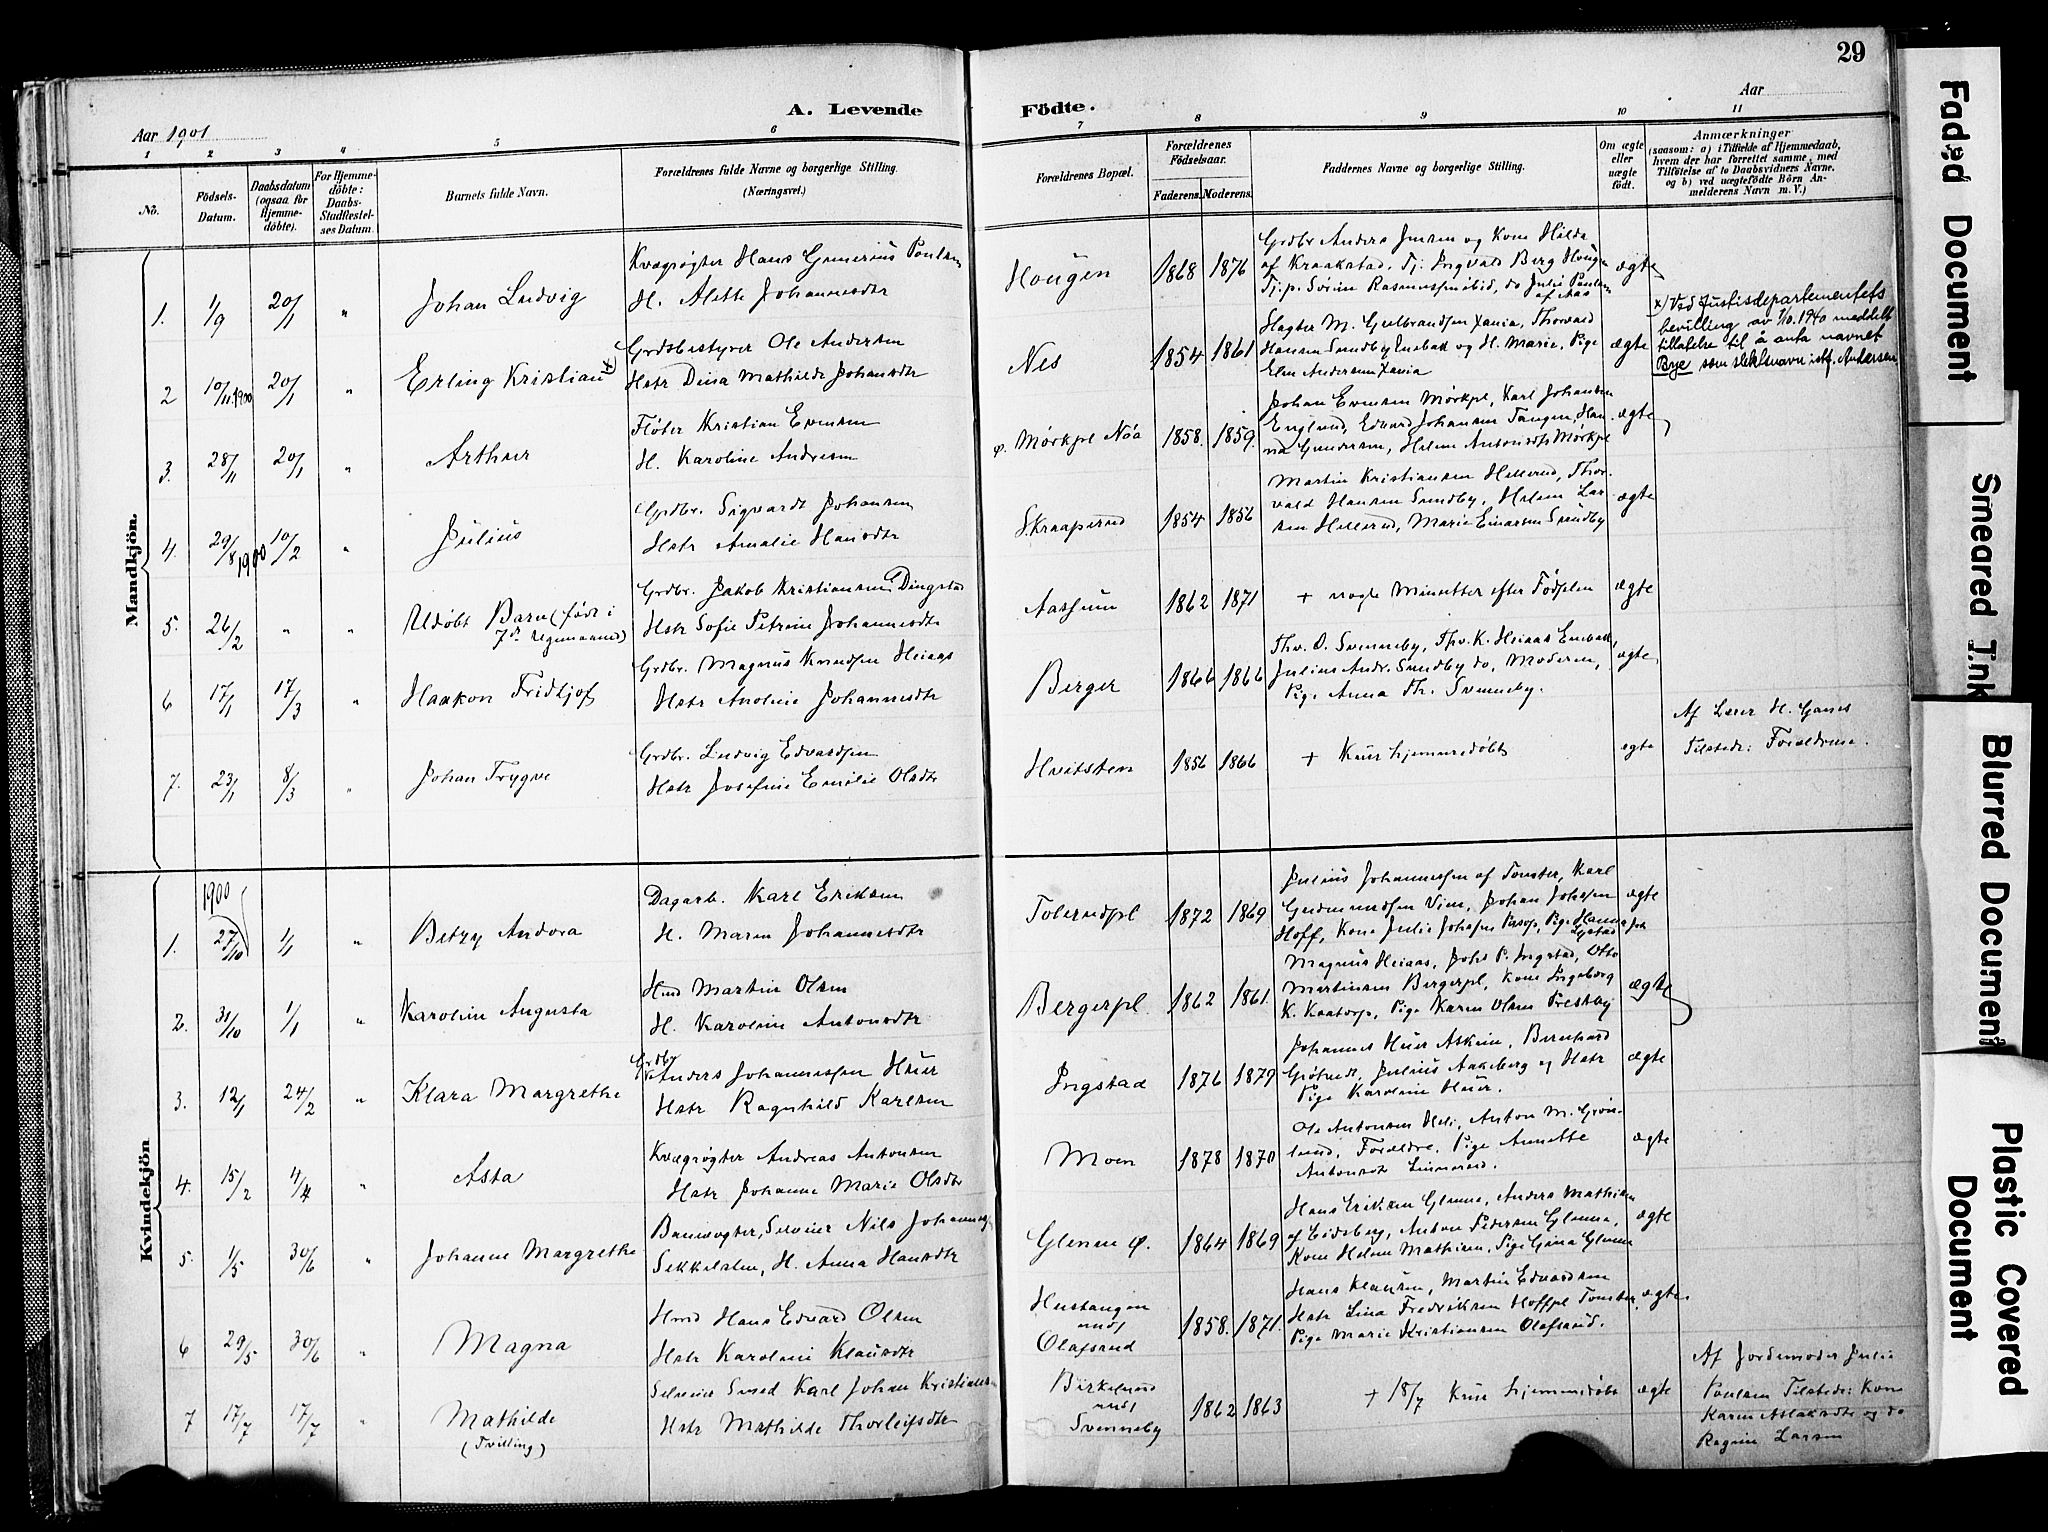 29
A. Levende Födte.
Aar 1901
Aar
1 2 3 4 5 6 7 8 9 10 11
No.
Födsels-Datum.
Daabsdatum (ogsaa for Hjemmedöbte).
For Hjemmedöbte: Daabs-Stadfæstelses Datum.
Barnets fulde Navn.
Forældrenes fulde Navne og borgerlige Stilling. (Næringsvei.)
Forældrenes Bopæl.
Forældrenes Födselsaar.
Faderens. Moderens.
Faddernes Navne og borgerlige Stilling.
Om ægte eller uægte födt.
Anmærkninger
(saasom: a) i Tilfælde af Hjemmedaab,
hvem der har forrettet samme, med
Tilföielse af to Daabsvidners Navne.
og b) ved uægtefödte Börn An-
melderens Navn m. V.)
Mandkjön.
Kvægrøgter Hans Gunerius Poulsen
1. 1/9 20/1 " Johan Ludvig H. Alette Johannesdtr
Hougen 1868 1876 ægte
Grdbr Anders Jensen og Kone Hilda
af Kraakstad, Tj. Ingvald Berg Hougen
Tj.p. Sörine Rasmussen ibid, do Julie Poulsen
af Aas
Grdsbestyrer Ole Andersen
2 10/11 1900 20/1 " Erling Kristian x Hstr Dina Mathilde Johansdtr
Nes 1854 1861 ægte
Slagter M. Gulbrandsen Xania, Thorvald
Hansen Sundby Enebak og H. Marie, Pige
Elen Andersen Xania
x) Ved Justisdepartementets
bevilling av 7/10.1940 meddelt
tillatelse til å anta navnet
Bye som slektsnavn istf. Andersen.
Fløter Kristian Evensen
3. 28/11 20/1 " Arthur H. Karoline Andresen
Mørkpl Nöa 1858. 1859. ægte
Johan Evensen Mørkpl, Karl Johansen
Englund, Edvard Johansen Tangen, Han-
na Gundersen, Helene Antonsdtr Mørkpl
Grdbr. Sigvardt Johansen
4. 29/8 1900 10/2 " Julius Hstr Amalie Hansdtr
Skraaperud 1854 1856 ægte
Martin Kristiansen Hellerud, Thor-
vald Hansen Sundby, Helene Lar-
sen Hellerud, Marie Einarsen Sundby
Grdbr. Jakob Kristiansen Dingstad
5. 26/2 " " Udøbt Barn (født i Hstr Sofie Petrine Johannesdtr
7de Svgmaaned)
Aashim 1862 1871 + nogle Minutter efter Fødselen ægte
Grdbr. Magnus Knudsen Heiaas
6 17/1 17/3 " Haakon Fridtjof Hstr Anoline Johannesdtr
Berger 1866 1866 ægte
Thv. O. Svenneby, Thv. K. Heiaas Enebak,
Julius Andr. Sundby do, Moderen,
Pige Anna Th. Svenneby.
Grdbr. Ludvig Edvardsen
7. 23/1 8/3 " Johan Trygve Hstr Josefine Emilie Olsdtr
Hvitsten 1856 1866 + Kun hjemmedøbt ægte
Af Lærer H. Ganes
Tilstede: Forældrene.
Kvindekjön
1900
Dagarb. Karl Eriksen
1. 27/10 1/1 " Betzy Andora H. Maren Johannesdtr
Toberudpl 1872 1869 ægte
Julius Johannessen af Tomter, Karl
Gudmundsen Vien, Johan Johnsen
Hoff, Kone Julie Johnsen, Pige Hanna
Hmd Martin Olsen
2. 31/10 1/1 " Karoline Augusta H. Karoline Antonsdtr
Bergerpl. 1862 1861. ægte
Magnus Heiaas, Johs P. Ingstad, Otto
Martinsen Bergerpl, Kone Ingeborg
K. Kaatorp, Pige Karen Olsen Prestby
Grdbr
Anders Johannessen Huer
3. 12/1 24/2 " Klara Margrethe Hstr Ragnhild Karlsen
Ingstad 1876 1879 ægte
Johannes Huer Askim, Bernhard
Grötvedt, Julius Aakeberg og Hstr
Pige Karoline Huer.
Kvægrøgter Andreas Antonsen
4. 15/2 4/4 " Asta Hstr Johanne Marie Olsdtr
Moen 1878 1870 ægte
Ole Antonsen Heli, Anton M. Grön-
lund, Forældre, Pige Annette
Antonsdtr Linnerud.
Banevogter, Selveier Nils Johannes
5. 1/5 30/6 " Johanne Margrethe Sekkelsten, H. Anna Hansdtr
Glenne ø. 1864 1869 ægte
Hans Eriksen Glenne, Anders Mathisen
af Eidsberg, Anton Pedersen Glenne,
Kone Helene Mathisen, Pige Gina Glenne
Hmd Hans Edvard Olsen
6 29/5 30/6 " Magna Hstr Karoline Klausdtr
Hustangen
und/
Olafsrud 1858. 1871. ægte
Hans Klausen, Martin Edvardsen
Hstr Lina Fredriksen Hoffpl Tomter,
Pige Marie Kristiansen Olafsrud.
Selveier Smed Karl Johan Kristiansen
7 17/7 17/7 " Mathilde Hstr Mathilde Thorleifsdtr
(Tvilling)
Birkelund
und/
Svenneby 1862 1863 + 18/7 Kun hjemmedøbt ægte
Af Jordemoder Julie
Poulsen Tilstede: Kone
Karen Aslaksdtr og do
Ragne Larsen
Faded Document
Smeared Ink
Blurred Document
Plastic Covered
Document